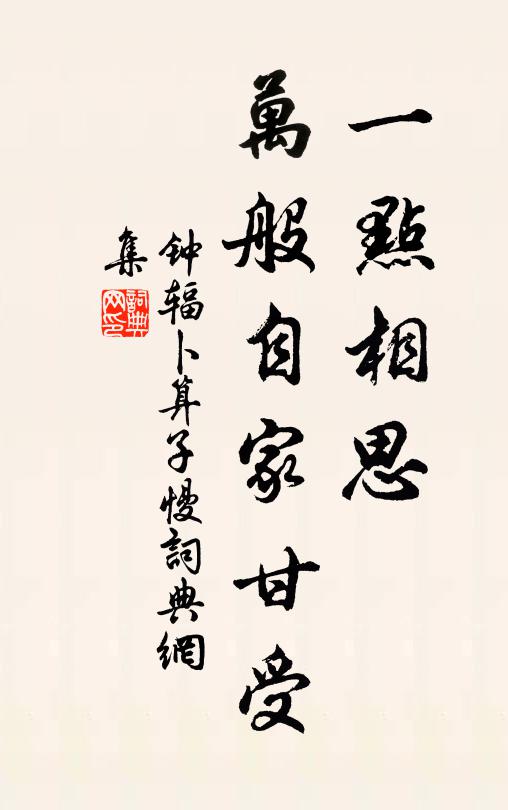 一點相思
萬般自家甘受
钟辐卜算子慢詞典網
集
詞典
网印